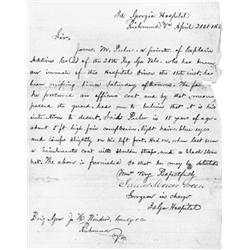 2d Georgia Hospital
Richmond Va April 21st 186
Sir,
James. M. Peeler, a private of Captains
Adkins Co of the 28th Reg Ga Vols. who has
been an inmate of this Hospital since the 15th inst has
been missing since Saturday afternoon. The fact
he procured an officers coat and by that means
passed the guard, has me to believe that it is his
intentions to desert. Said Peeler is 18 years of age
about 5 ft high fair complexion, light hair blue eyes
and limps slightly on his left foot. Had on, when last seen
a Lieutenants coat with shoulder straps, and a
Hat. The above is furnished so that he may be
Most Very Respectfully
James Green
Surgeon in charge
2d Ga Hospital
Brig Genr Jn. H. Winder,
Richmond
Va